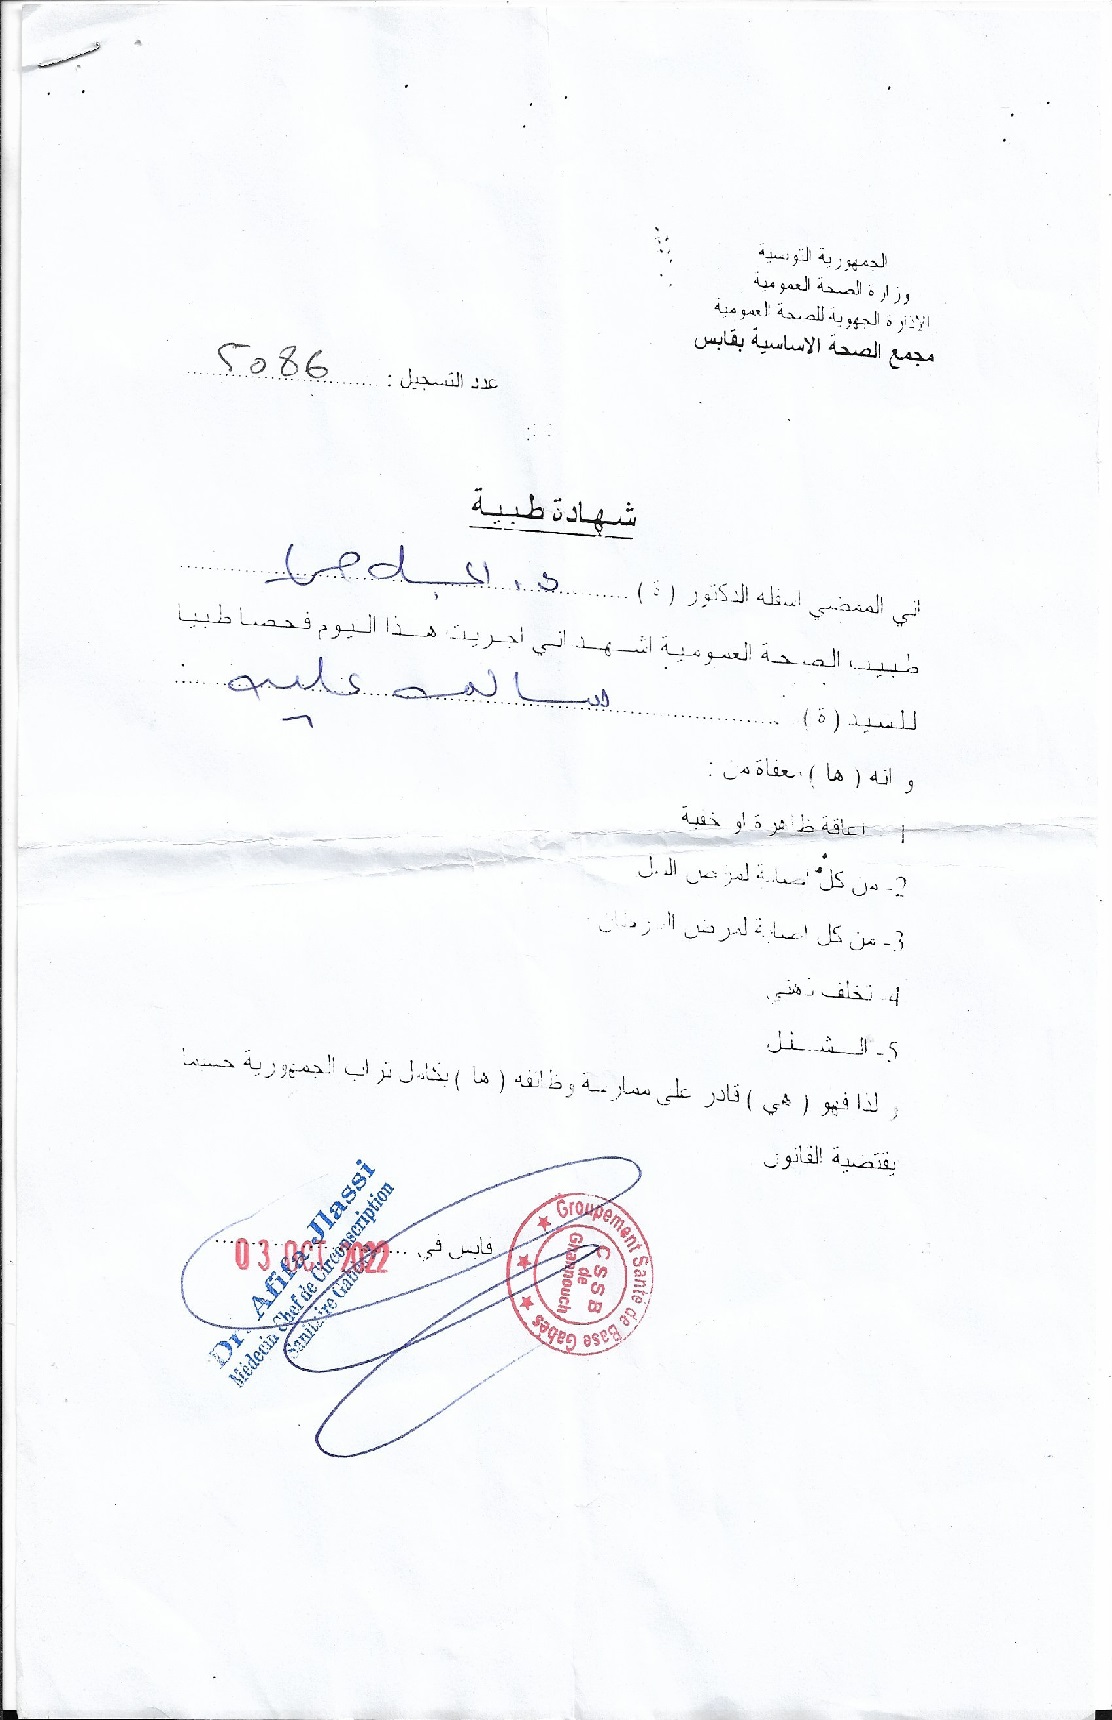 الجمهورية التونسية
وزارة الصحة العمومية
الادارة الجهوية للصحة العمومية
مجمع الصحة الاساسية بقابس
عدد التسجيل : 5086
شهادة طبية
اني الممضي اسفله الدكتور ( ة )
طبيب الصحة العمومية اشهد اني اجريت هذا اليوم فحصا طبيا
للسيد ( ة )
و انه ( ها ) معفاة من :
1 اعاقة ظاهرة او خفية
2- من كل اصابة لمرض السل
3- من كل اصابة لمرض السرطان
4- تخلف ذهني
5- الشلل
و لذا فهو ( هي ) قادر على ممارسة وظائفه ( ها ) بكامل تراب الجمهورية حسبما
يقتضية القانون
قابس في 03 OCT 2022
Dr. Afifa Jlassi
Médecin Chef de Circonscription
Sanitaire Gabes
Groupement Santé de Base Gabes
CSSB
de
Ghannouch